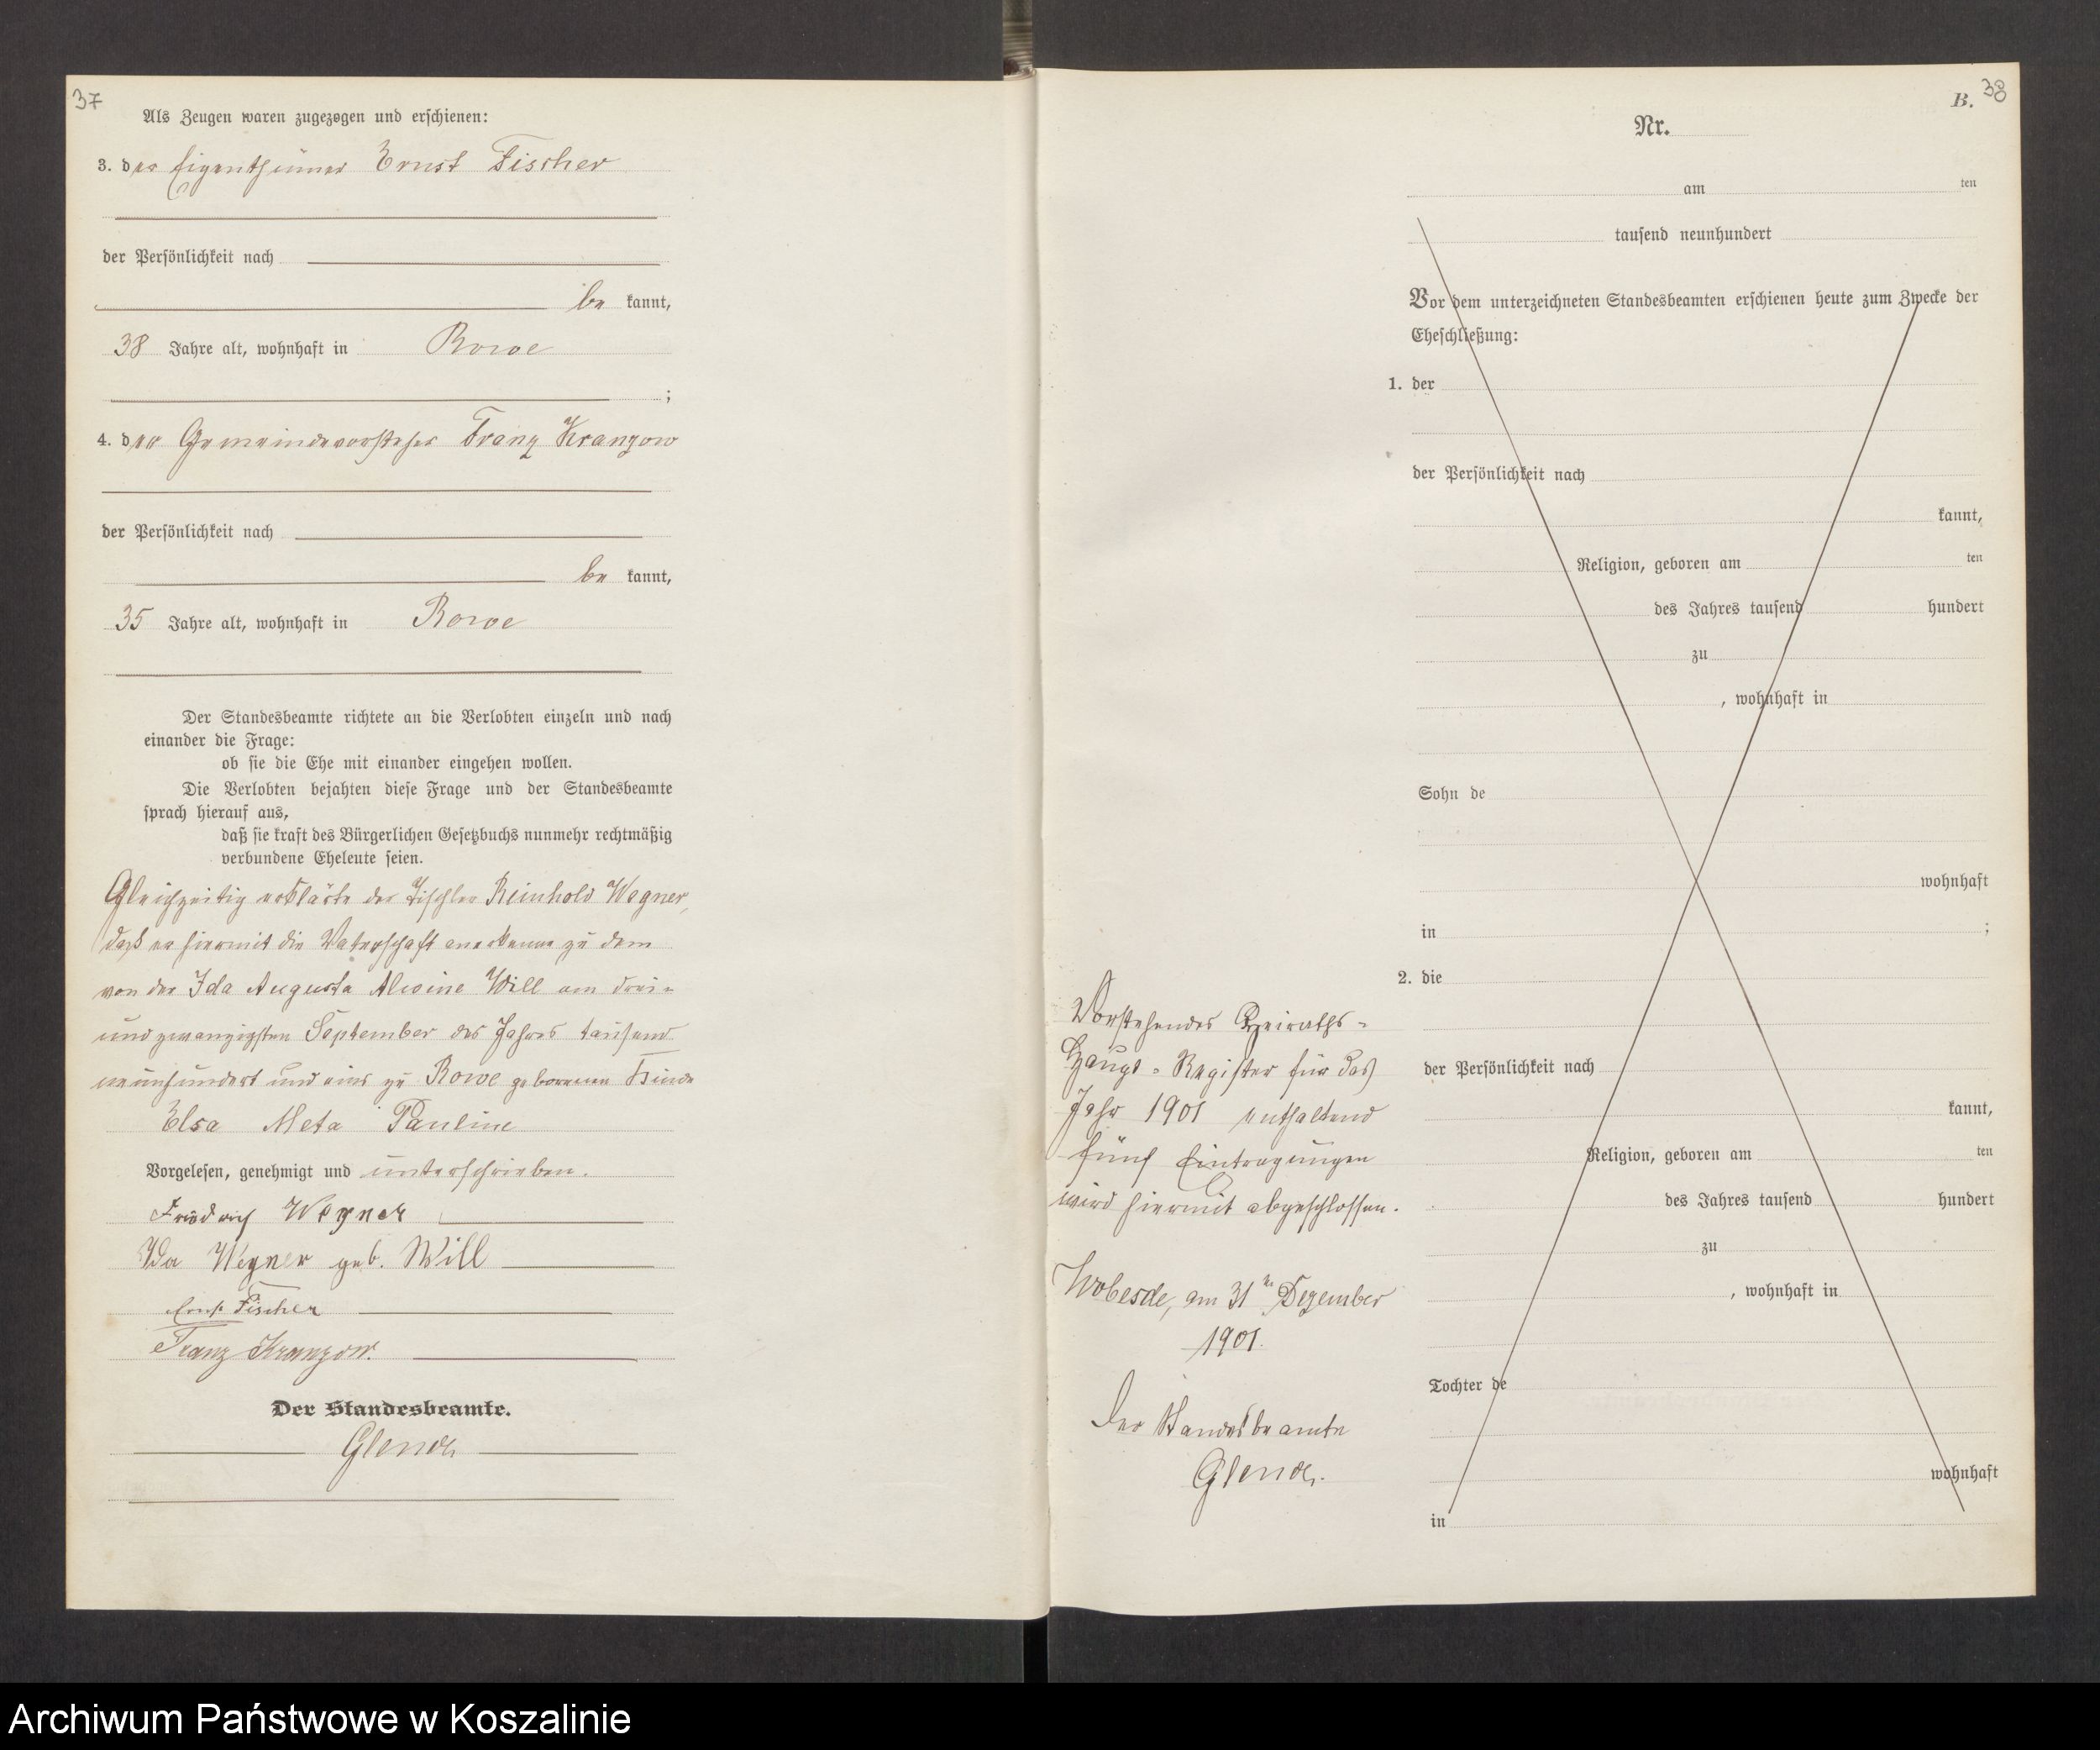 37
Als Zeugen waren zugezogen und erschienen:
3. der Eigenthümer Ernst Fischer
der Persönlichkeit nach
be kannt,
38 Jahre alt, wohnhaft in Rowe
;
4. der Gemeindevorsteher Franz Kranzow
der Persönlichkeit nach
be kannt,
35 Jahre alt, wohnhaft in Rowe
Der Standesbeamte richtete an die Verlobten einzeln und nach
einander die Frage:
ob sie die Ehe mit einander eingehen wollen.
Die Verlobten bejahten diese Frage und der Standesbeamte
sprach hierauf aus,
daß sie kraft des Bürgerlichen Gesetzbuchs nunmehr rechtmäßig
verbundene Eheleute seien.
Gleichzeitig erklärte der Tischler Reinhold Wegner,
daß er hiermit die Vaterschaft anerkenne zu dem
von der Ida Augusta Alwine Will am drei-
undzwanzigsten September des Jahres tausend
neunhundert und eins zu Rowe geborenen Kinde
Elsa Meta Pauline
Vorgelesen, genehmigt und unterschrieben.
Friedrich Wegner
Ida Wegner geb. Will
Ernst Fischer
Franz Kranzow.
Der Standesbeamte.
Glende
38
B.
Nr.
am ten
tausend neunhundert
Vor dem unterzeichneten Standesbeamten erschienen heute zum Zwecke der
Eheschließung:
1. der
der Persönlichkeit nach
kannt,
Religion, geboren am ten
des Jahres tausend hundert
zu
, wohnhaft in
Sohn de
wohnhaft
in ;
2. die
der Persönlichkeit nach
kannt,
Religion, geboren am ten
des Jahres tausend hundert
zu
, wohnhaft in
Tochter de
wohnhaft
in
Vorstehendes Heiraths-
Haupt-Register für das
Jahr 1901 enthaltend
fünf Eintragungen
wird hiermit abgeschlossen.
Wobesde, am 31ten Dezember
1901.
Der Standesbeamte
Glende.
Archiwum Państwowe w Koszalinie